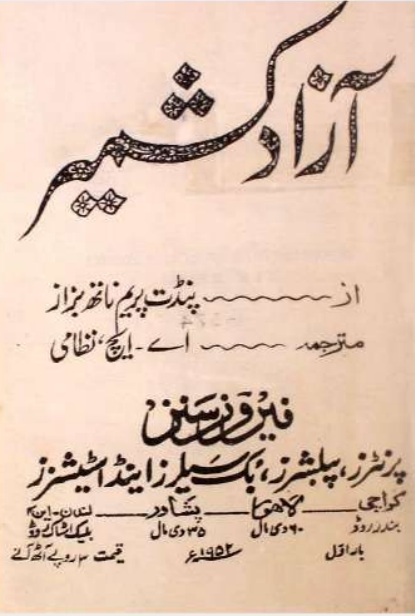 آزاد کشمیر
از ــــــ پنڈت پریم ناتھ بزاز
مترجمہ ــــــ اے - ایچ، نظامی
فیروز سنز
پرنٹرز، پبلشرز، بک سیلرز اینڈ اسٹیشنرز
کراچی ــــ لاھور ــــ پشاور ــــ لندن - این ۴
بندر روڈ ۶۰ دی مال ۳۵ دی مال بلیک اسٹاک روڈ
بار اوّل ۱۹۵۲ء قیمت ۳ روپے آٹھ آنے